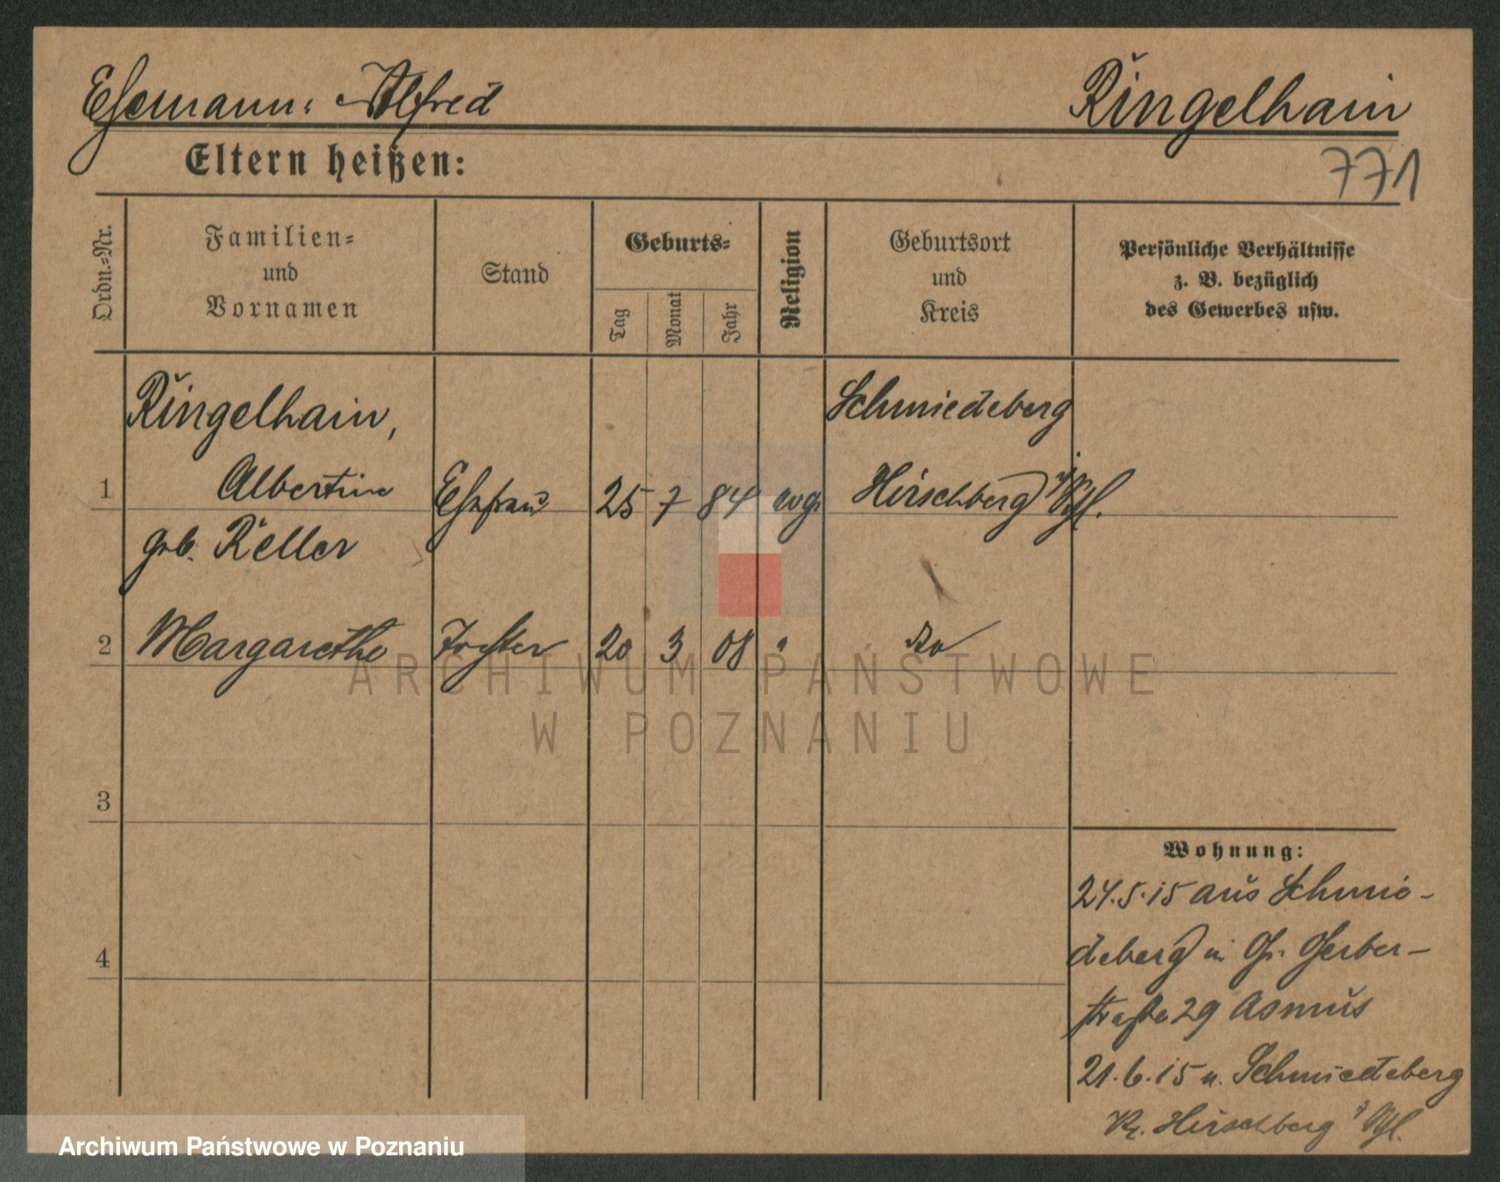 Ehemann: Alfred
Ringelhain
Eltern heißen:
771
Ordn.=Nr.
Familien=
und
Vornamen
Stand
Geburts=
Tag
Monat
Jahr
Religion
Geburtsort
und
Kreis
Persönliche Verhältnisse
z. B. bezüglich
des Gewerbes usw.
Ringelhain,
Schmiedeberg
1 Albertine Ehefrau 25 7 84 evgl. Hirschberg i/Schl.
geb. Keller
2 Margarethe Tochter 20 3 08 " do
ARCHIWUM PAŃSTWOWE
W POZNANIU
3
4
Wohnung:
24.5.15 aus Schmie-
deberg in Gr. Gerber-
straße 29 Asmus
21.6.15 n. Schmiedeberg
Kr. Hirschberg i/Schl.
Archiwum Państwowe w Poznaniu